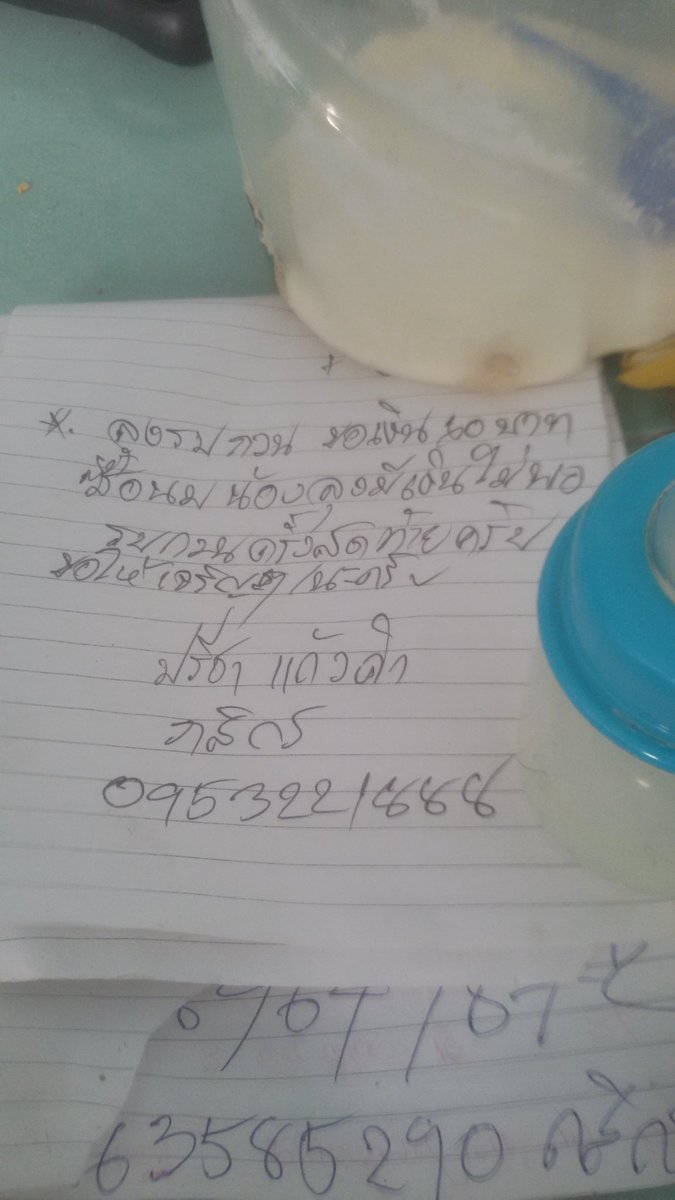 *. ลุงรบกวน ขอเงิน ๖๐ บาท
ซื้อนม น้องลุงมีเงินไม่พอ
รบกวนครั้งสุดท้ายครับ
ขอให้เจริญๆ นะครับ
ปรีชา แก้วคำ
กสิกร
0953221888
63585290